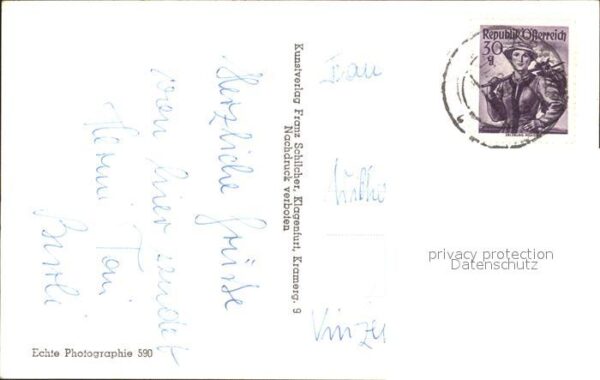 Herzliche Grüße
von hier sendet
Hermi Toni
Kunstverlag Franz Schilcher, Klagenfurt, Kramerg. 9
Nachdruck verboten
Echte Photographie 590
Republik Österreich
30
g
Frau
privacy protection
Datenschutz